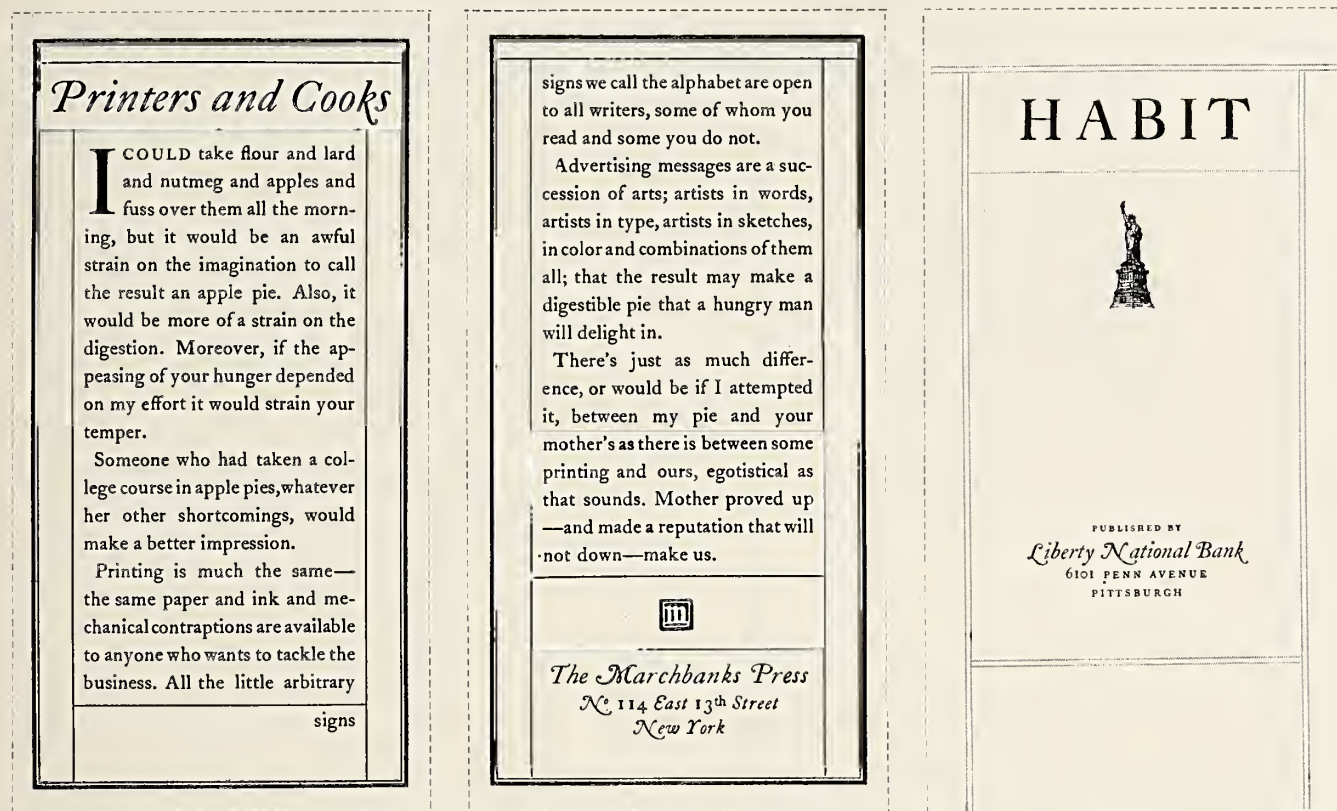 Printers and Cooks
I COULD take flour and lard
and nutmeg and apples and
fuss over them all the morn-
ing, but it would be an awful
strain on the imagination to call
the result an apple pie. Also, it
would be more of a strain on the
digestion. Moreover, if the ap-
peasing of your hunger depended
on my effort it would strain your
temper.
Someone who had taken a col-
lege course in apple pies, whatever
her other shortcomings, would
make a better impression.
Printing is much the same—
the same paper and ink and me-
chanical contraptions are available
to anyone who wants to tackle the
business. All the little arbitrary
signs
signs we call the alphabet are open
to all writers, some of whom you
read and some you do not.
Advertising messages are a suc-
cession of arts; artists in words,
artists in type, artists in sketches,
in color and combinations of them
all; that the result may make a
digestible pie that a hungry man
will delight in.
There's just as much differ-
ence, or would be if I attempted
it, between my pie and your
mother's as there is between some
printing and ours, egotistical as
that sounds. Mother proved up
—and made a reputation that will
not down—make us.
The Marchbanks Press
No. 114 East 13th Street
New York
HABIT
PUBLISHED BY
Liberty National Bank
6101 PENN AVENUE
PITTSBURGH